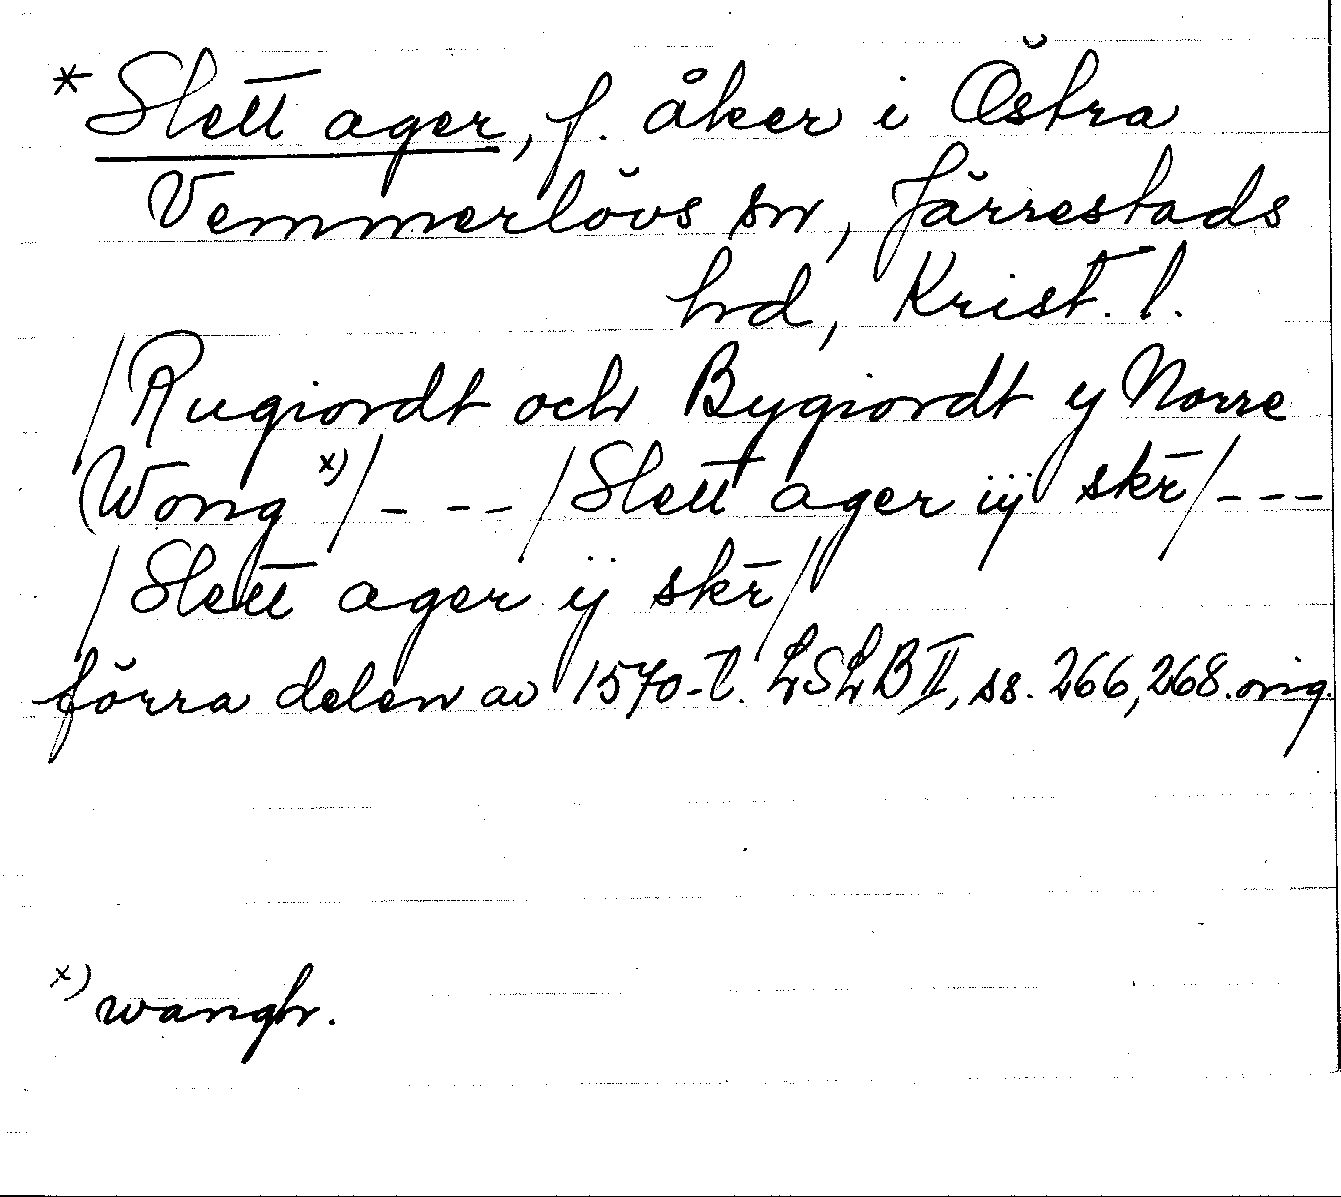 * Slett ager, f. åker i Östra
Vemmerlövs sn, Järrestads
hd, Krist. l.
/Rugiordt och Bygiordt y Norre
Wong x)/ - - - /Slett ager iij skr/ - - -
/Slett ager ij skr/
förra delen av 1570-t. LSLB II, ss. 266, 268. orig.
x) wangh.